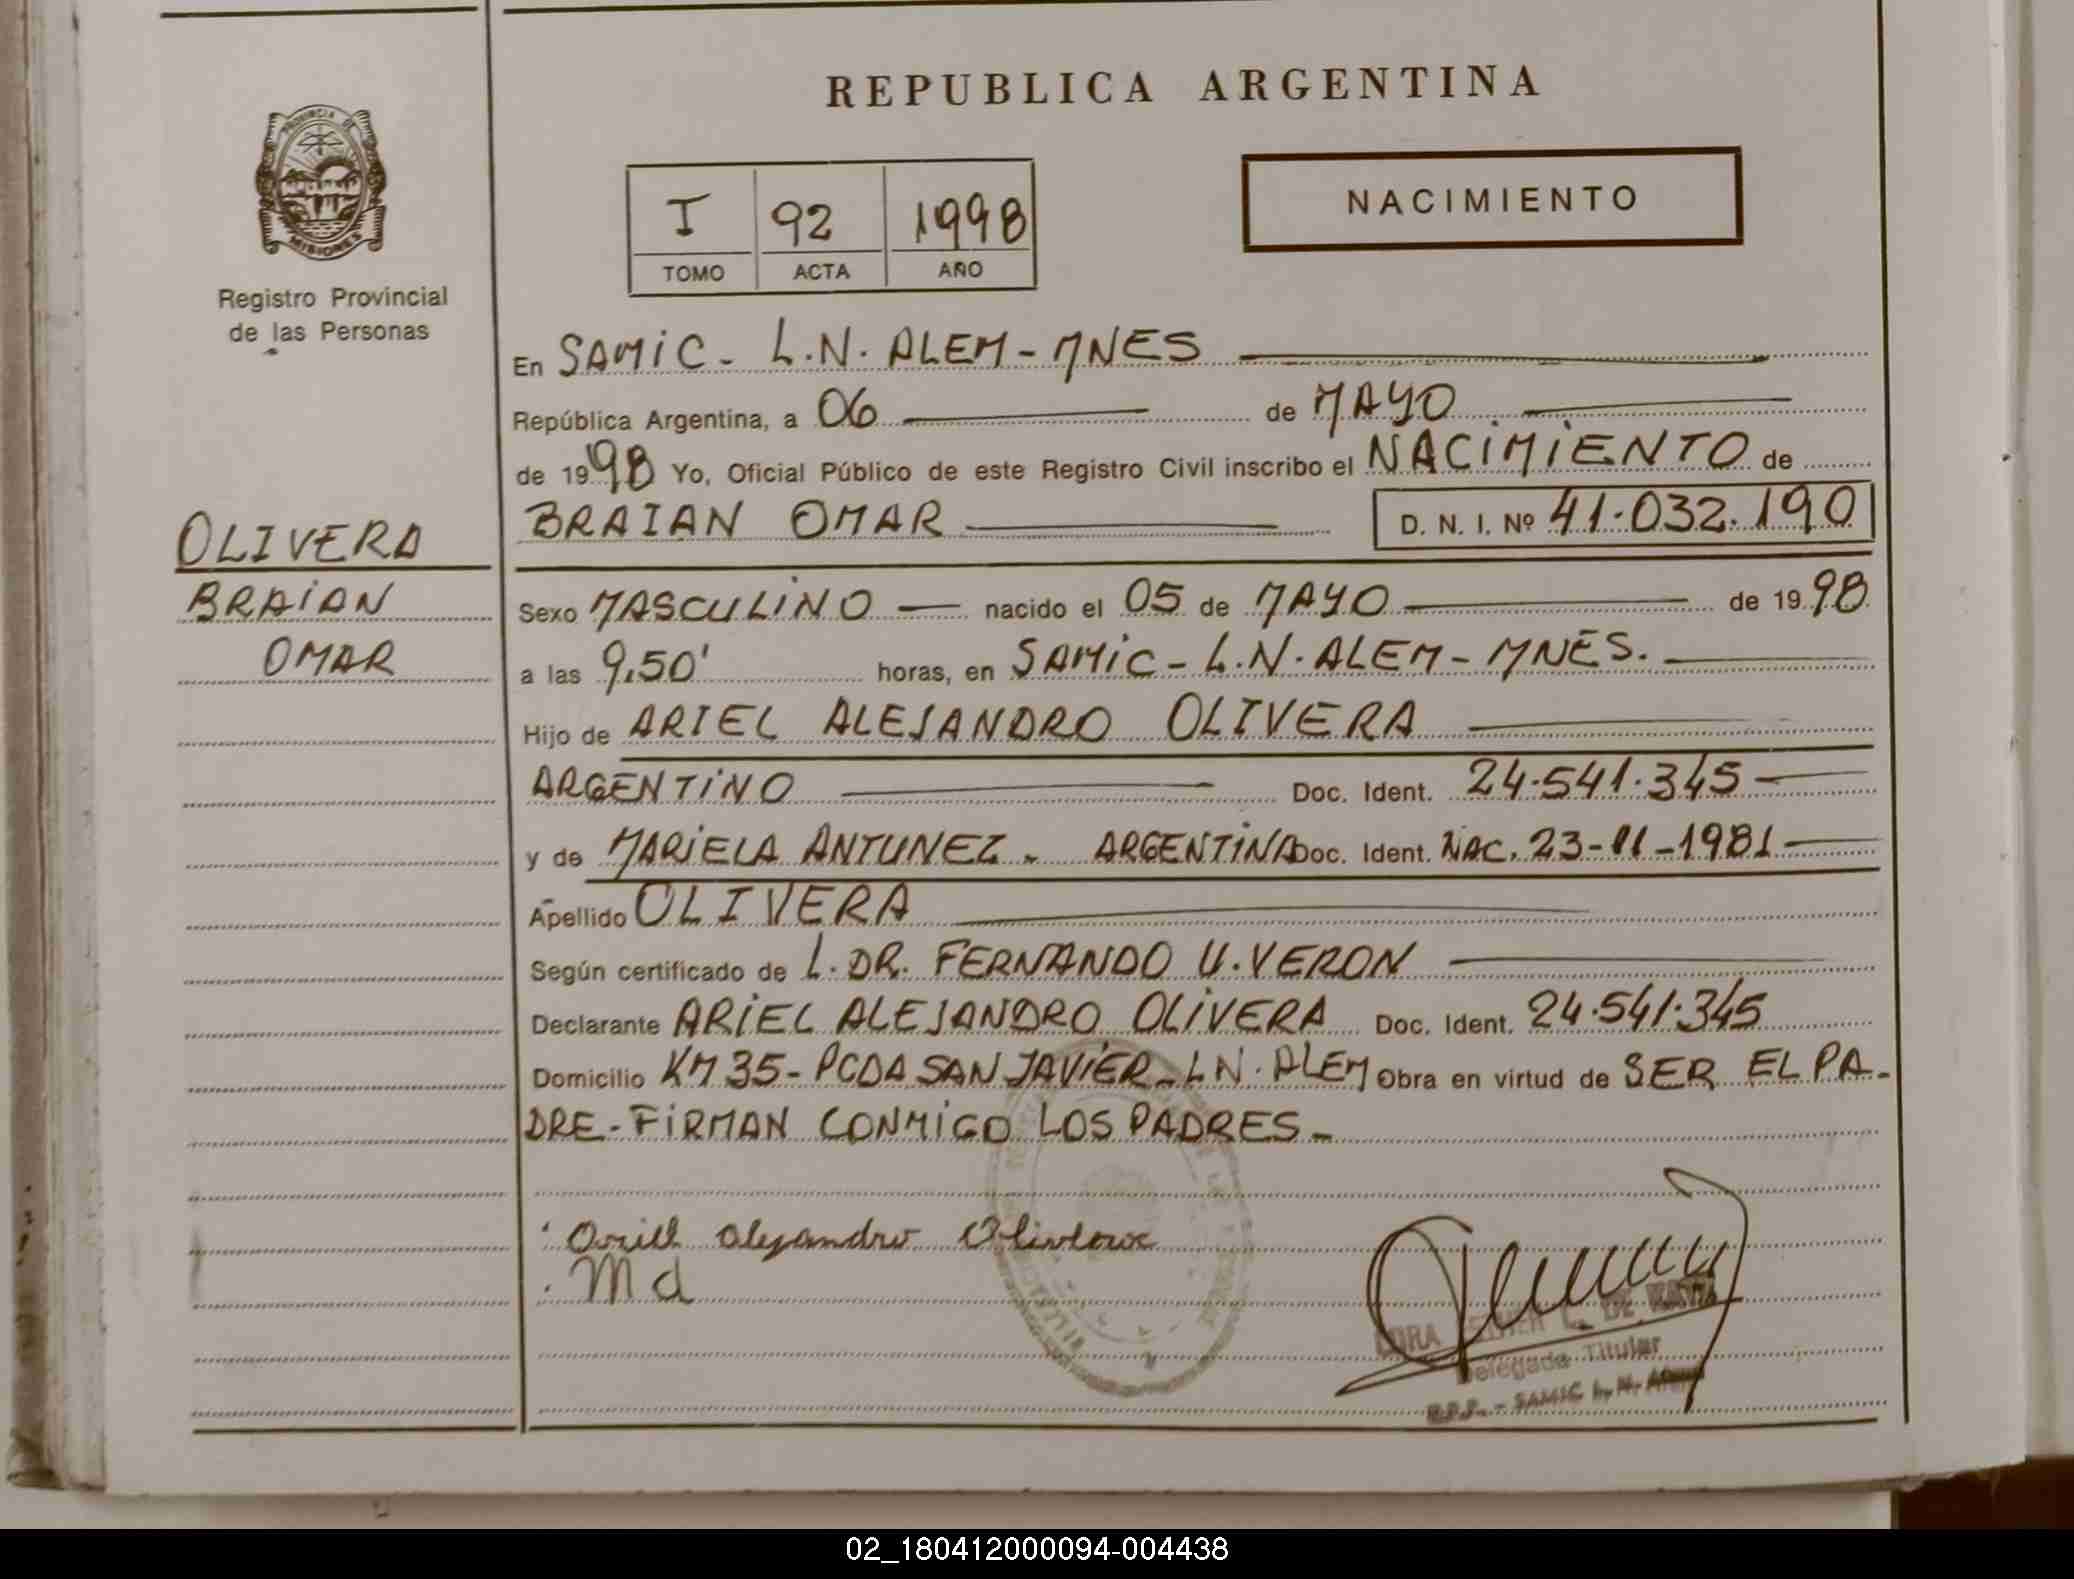 REPUBLICA ARGENTINA
PROVINCIA DE
MISIONES
Registro Provincial
de las Personas
NACIMIENTO
I 92 1998
TOMO ACTA AÑO
En SAMIC - L.N. ALEM - MNES
República Argentina, a 06 de MAYO
de 1998 Yo, Oficial Público de este Registro Civil inscribo el NACIMIENTO de
BRAIAN OMAR D. N. I. Nº 41.032.190
OLIVERA
BRAIAN
OMAR
Sexo MASCULINO nacido el 05 de MAYO de 1998
a las 9,50' horas, en SAMIC - L.N. ALEM - MNES.
Hijo de ARIEL ALEJANDRO OLIVERA
ARGENTINO Doc. Ident. 24.541.345
y de MARIELA ANTUNEZ - ARGENTINA Doc. Ident. NAC. 23-11-1981
Apellido OLIVERA
Según certificado de L. DR. FERNANDO U. VERON
Declarante ARIEL ALEJANDRO OLIVERA Doc. Ident. 24.541.345
Domicilio KM 35 - PCDA SAN JAVIER - LN. ALEM Obra en virtud de SER EL PA-
DRE - FIRMAN CONMIGO LOS PADRES -
Alejandro
Delegada Titular
R.P.P. - SAMIC L. N. Alem
02_180412000094-004438